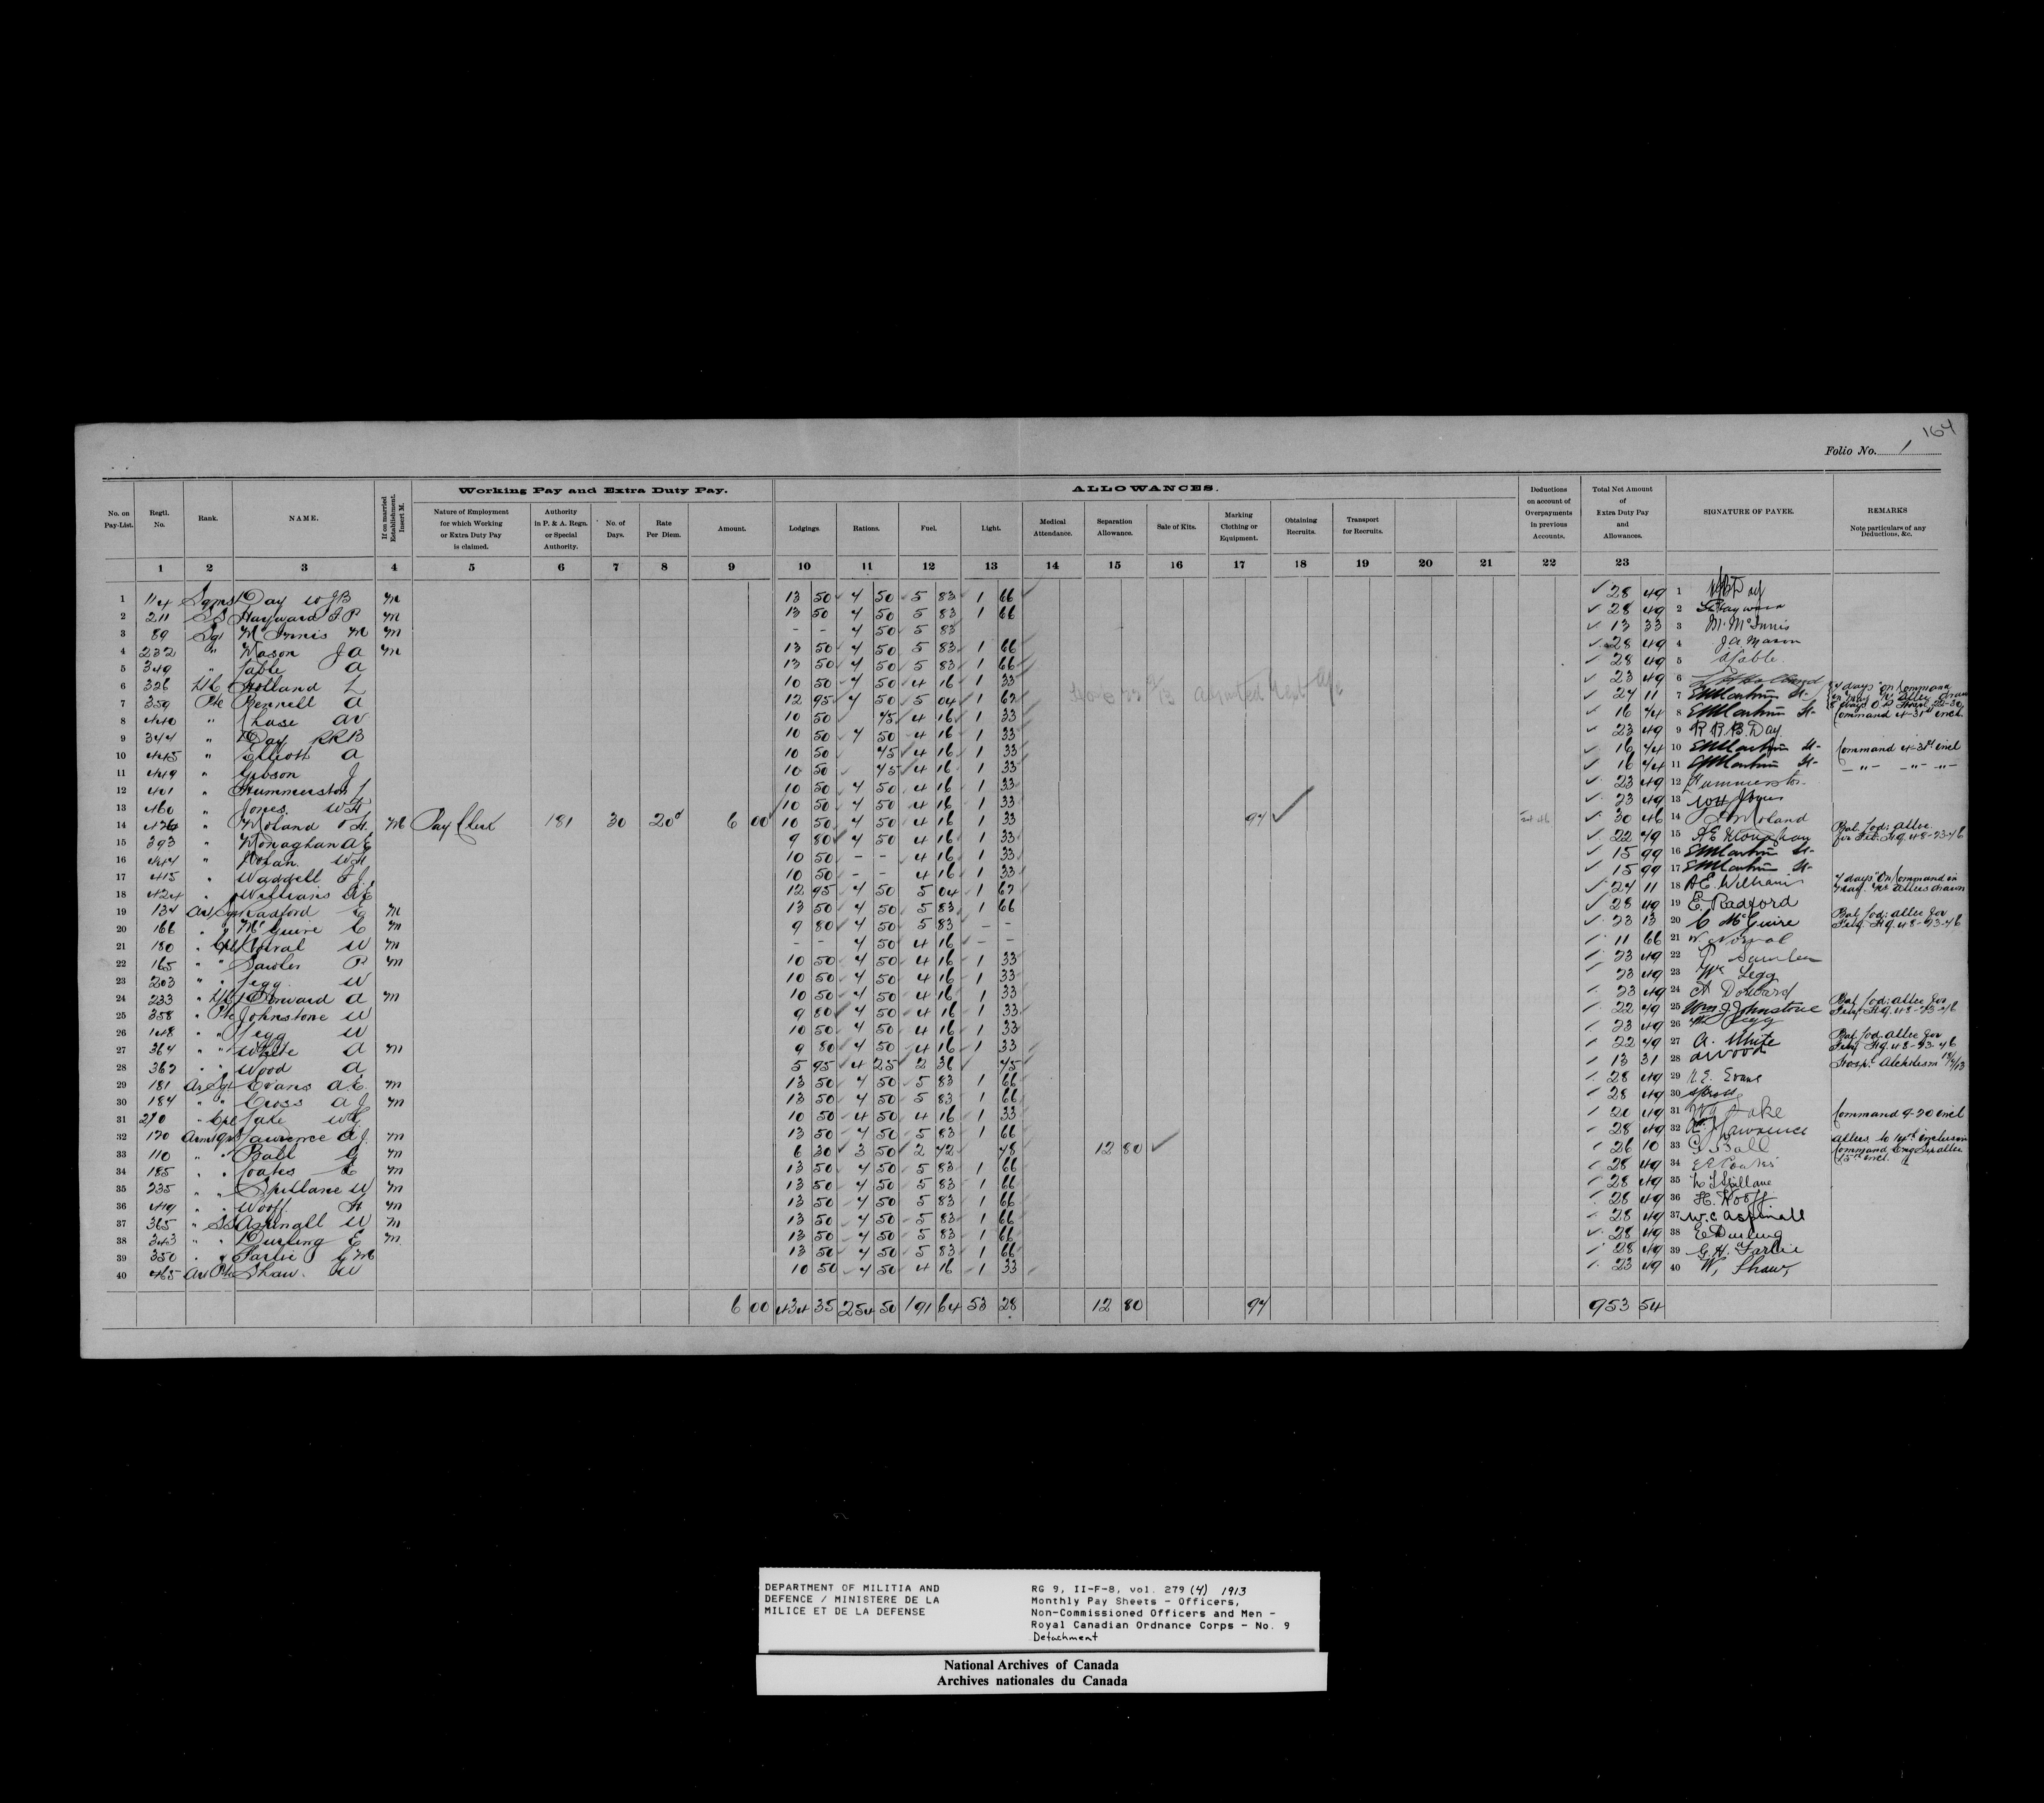 164
Folio No. 1
Working Pay and Extra Duty Pay. ALLOWANCES.
No. on Pay-List. Regtl. No. Rank. NAME. If on married Establishment. Insert M. Nature of Employment for which Working or Extra Duty Pay is claimed. Authority in P. & A. Regn. or Special Authority. No. of Days. Rate Per Diem. Amount. Lodgings. Rations. Fuel. Light. Medical Attendance. Separation Allowance. Sale of Kits. Marking Clothing or Equipment. Obtaining Recruits. Transport for Recruits. Deductions on account of Overpayments in previous Accounts. Total Net Amount of Extra Duty Pay and Allowances. SIGNATURE OF PAYEE. REMARKS Note particulars of any Deductions, &c.
1 2 3 4 5 6 7 8 9 10 11 12 13 14 15 16 17 18 19 20 21 22 23
1 114 Sqms Day W J B M 13 50 4 50 5 83 1 66 28 49 1 WJB Day
2 211 SS Hayward J P M 13 50 4 50 5 83 1 66 28 49 2 Hayward
3 89 Sgt McInnis M M - - 4 50 5 83 13 33 3 M. McInnis
4 232 " Mason J A M 13 50 4 50 5 83 1 66 28 49 4 J A Mason
5 349 " Cable A 13 50 4 50 5 83 1 66 28 49 5 A Cable
6 326 L/C Holland L 10 50 4 50 4 16 1 33 23 49 6 Holland
7 359 Pte Rennell A 12 95 4 50 5 04 1 62 24 11 7 4 days on Command
8 440 " Chase AV 10 50 45 4 16 1 33 16 44 8 Command 4-31st incl.
9 344 " Day R R B 10 50 4 50 4 16 1 33 23 49 9 R R B Day
10 445 " Elliott A 10 50 45 4 16 1 33 16 44 10 Command 4-31st incl
11 449 " Gibson J 10 50 45 4 16 1 33 16 44 11 - " - - " - " -
12 401 " Hummerston L 10 50 4 50 4 16 1 33 23 49 12 Hummerston
13 460 " Jones W H 10 50 4 50 4 16 1 33 23 49 13 W H Jones
14 426 " Moland F H M Pay Clerk 181 30 20 6 00 10 50 4 50 4 16 1 33 94 30 46 14 Moland
15 393 " Monaghan A E 9 80 4 50 4 16 1 33 22 49 15 A E Monaghan Bal. Lod: allce for Feb. Hq. 48-23-46
16 444 " Nolan W H 10 50 - - 4 16 1 33 15 99 16
17 415 " Waddell F J 10 50 - - 4 16 1 33 15 99 17
18 424 " Williams A E 12 95 4 50 5 04 1 62 24 11 18 A E Williams 4 days on Command in
19 134 Ar/Sgt Radford E M 13 50 4 50 5 83 1 66 28 49 19 E. Radford
20 166 " " McGuire C M 9 80 4 50 5 83 - - 23 13 20 C McGuire Bal. Lod: allce for Feb. Hq. 48-23-46
21 180 " Cpl Norval W M - - 4 50 4 16 - - 11 66 21 W. Norval
22 165 " " Sawler P M 10 50 4 50 4 16 1 33 23 49 22 P Sawler
23 203 " " Legg W 10 50 4 50 4 16 1 33 23 49 23 Wm Legg
24 233 " L/C Dorward A M 10 50 4 50 4 16 1 33 23 49 24 A Dorward
25 358 " Pte Johnstone W 9 80 4 50 4 16 1 33 22 49 25 Wm. J Johnstone Bal. Lod: allce for Feb. Hq. 48-23-46
26 148 " " Legg W 10 50 4 50 4 16 1 33 23 49 26 Wm Legg
27 364 " " White A M 9 80 4 50 4 16 1 33 22 49 27 A. White Bal. Lod. allce for Feb. Hq. 48-23-46
28 362 " " Wood A 5 95 4 25 2 36 45 13 31 28 A Wood
29 181 Ar Sgt Evans A E M 13 50 4 50 5 83 1 66 28 49 29 A. E. Evans
30 184 " " Cross A J M 13 50 4 50 5 83 1 66 28 49 30 Cross
31 210 " Cpl Lake W G 10 50 4 50 4 16 1 33 20 49 31 W G Lake Command 9-20 incl
32 120 Lawrence A J M 13 50 4 50 5 83 1 66 28 49 32 Lawrence
33 110 " " Ball G M 6 30 3 50 2 42 48 12 80 26 10 33 G Ball allces to 14th inclusive
34 185 " " Coates E M 13 50 4 50 5 83 1 66 28 49 34 Coates
35 235 " " Spillane W M 13 50 4 50 5 83 1 66 28 49 35 Spillane
36 419 " " Wooff H M 13 50 4 50 5 83 1 66 28 49 36 H. Wooff
37 365 " SS Aspinall W M 13 50 4 50 5 83 1 66 28 49 37 W. C Aspinall
38 343 " " Durling E M 13 50 4 50 5 83 1 66 28 49 38 E Durling
39 350 " " Farlie G H 13 50 4 50 5 83 1 66 28 49 39 G. H. Farlie
40 465 Ar Pte Shaw W 10 50 4 50 4 16 1 33 23 49 40 W. Shaw
6 00 434 35 254 50 191 64 53 28 12 80 94 953 54
DEPARTMENT OF MILITIA AND
DEFENCE / MINISTERE DE LA
MILICE ET DE LA DEFENSE
RG 9, II-F-8, vol. 279 (4) 1913
Monthly Pay Sheets - Officers,
Non-Commissioned Officers and Men -
Royal Canadian Ordnance Corps - No. 9
Detachment
National Archives of Canada
Archives nationales du Canada